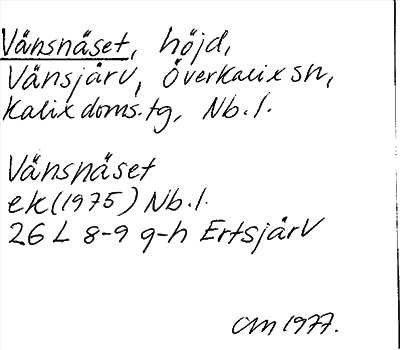 Vänsnäset, höjd,
Vänsjärv, Överkalix sn,
Kalix doms.tg, Nb.l.
Vänsnäset
ek (1975) Nb.l.
26 L 8-9 g-h Ertsjärv
CM 1977.